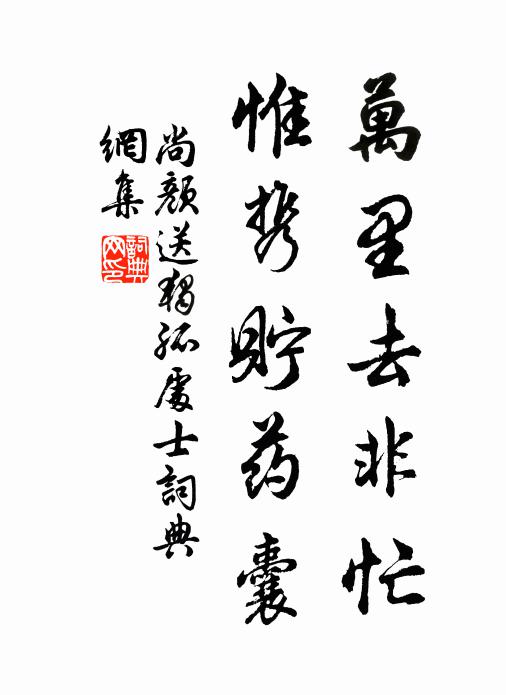 萬里去非忙
惟携貯药囊
尚顏送獨孤處士詞典
網集
詞典
网印